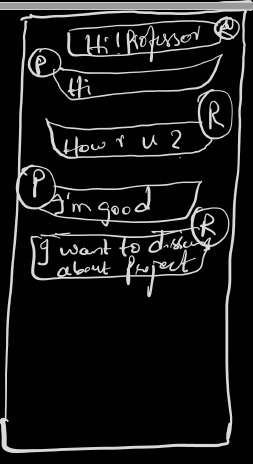 Hi! Professor R
P
Hi
R
How r u ?
P
I'm good
R
I want to discuss
about Project